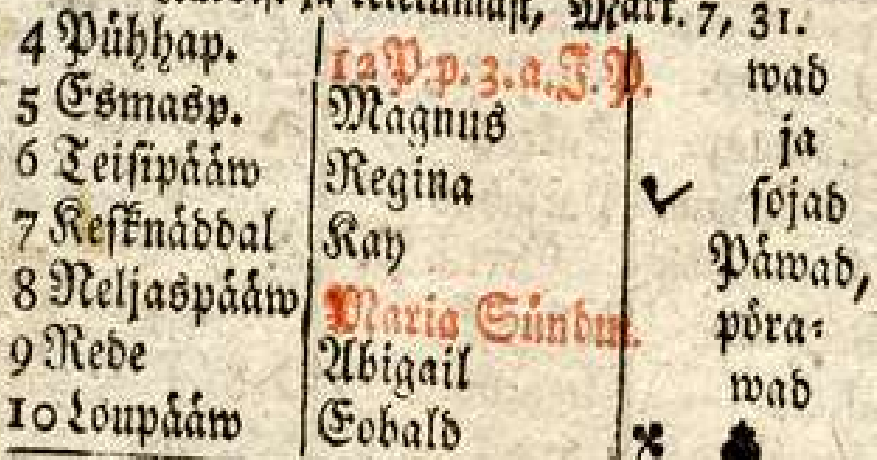 Mark. 7, 31.
4 Pühhap. 12 P. p. 3. a. J. P. wad
5 Esmasp. Magnus ja
6 Teisipääw Regina sojad
7 Kesknäddal Kay Päwad,
8 Neljaspääw Maria Sündm. pöra-
9 Rede Abigail wad
10 Loupääw Eobald